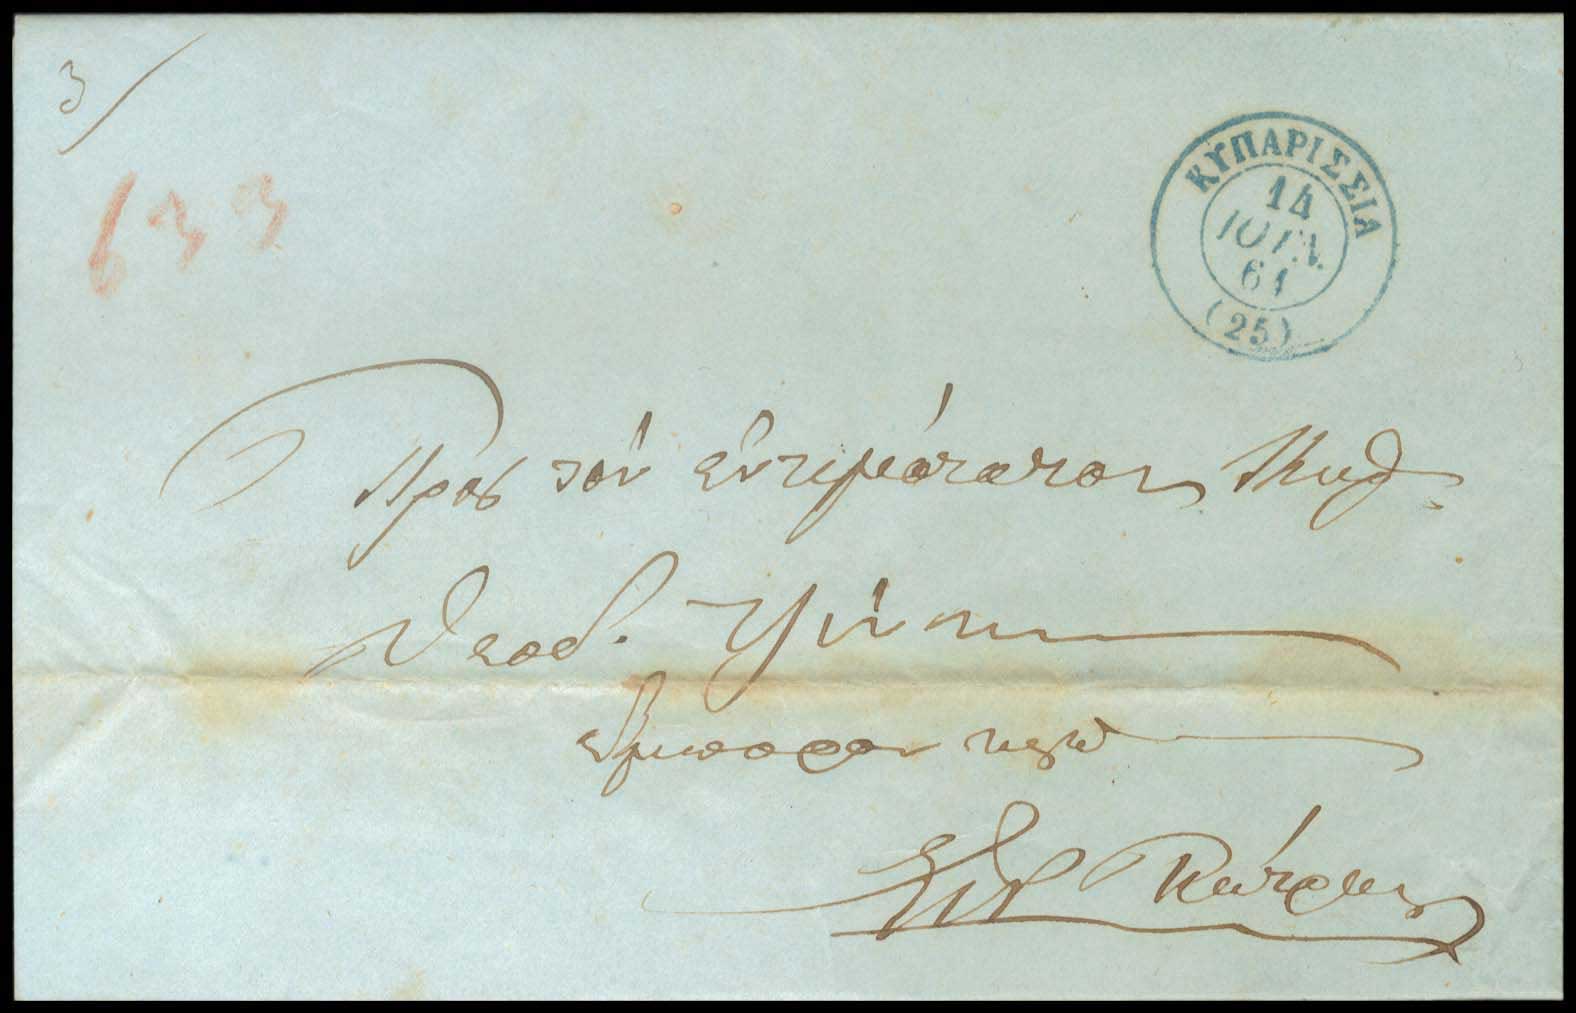 3/
633
ΚΥΠΑΡΙΣΣΙΑ
14
ΙΟΥΝ.
61
(25)
Προς τον εντιμότατον Κυρ
Θεοδ.
έμπορον
Εις Πάτρας